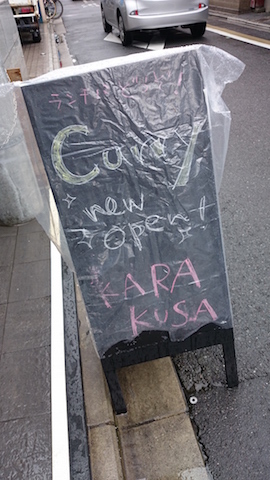 Curry
new
open!
KARA
KUSA